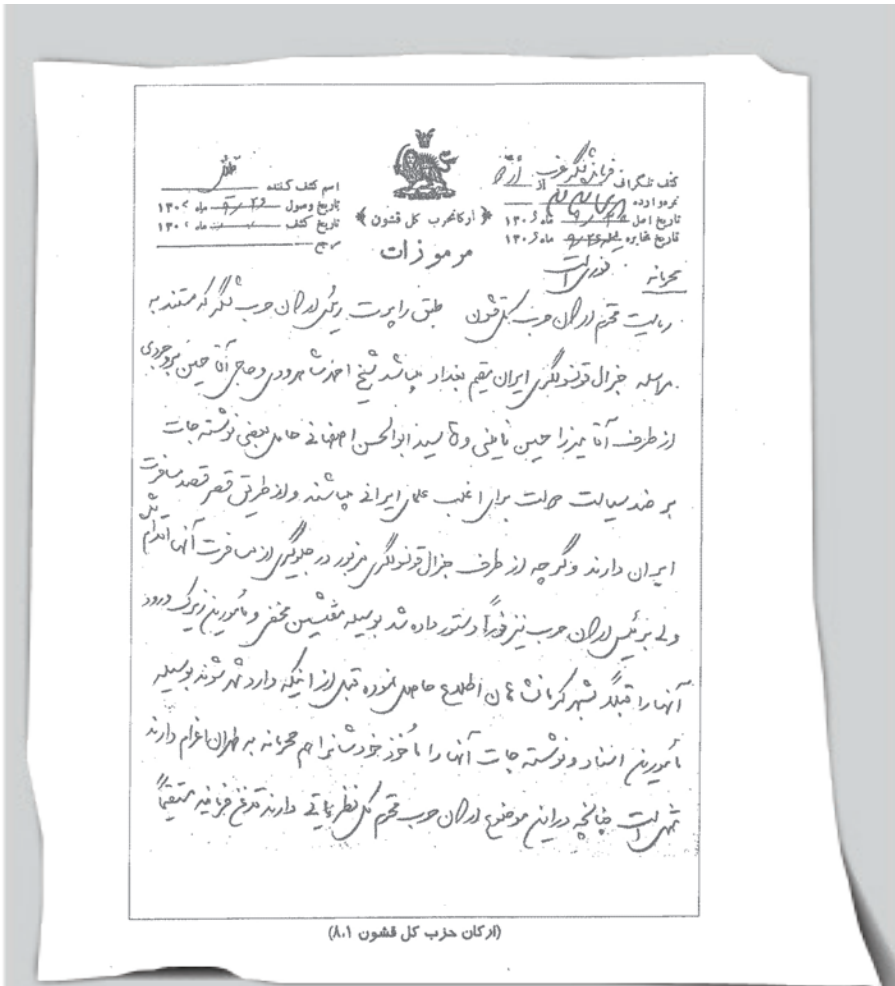 کشف تلگراف فرمانده لشگر غرب از
نمره وارده
تاریخ اصل ماه ۱۳۰۶
تاریخ مخابره ماه ۱۳۰۶
﴿ ارکانحرب کل قشون ﴾
مرموزات
اسم کشف کننده
تاریخ وصول ماه ۱۳۰
تاریخ کشف ماه ۱۳۰
محرمانه فوری است
ریاست محترم ارکان حرب کل قشون طبق راپرت رئیس ارکان حرب لشگر که مستند به
مراسله جنرال قونسولگری ایران مقیم بغداد میباشد شیخ احمد شاهرودی و حاجی آقا حسین بروجردی
از طرف آقا میرزا حسین نایینی و آقا سید ابوالحسن اصفهانی حامل بعضی نوشته جات
بر ضد سیاست دولت برای اغلب علمای ایرانی میباشند و از طریق قصر قصد مسافرت
ایران دارند و گرچه از طرف جنرال قونسولگری مزبور در جلوگیری از مسافرت آنها اقدام شده
ولی برئیس ارکان حرب نیز فوراً دستور داده شد بوسیله مفتشین مخفی و مأمورین زیرک ورود
آنها را قبلاً بشهر کرمانشاهان اطلاع حاصل نموده قبل از اینکه وارد شهر شوند بوسیله
مأمورین اسناد و نوشته جات آنها را مأخوذ خودشانرا هم محرمانه به طهران اعزام دارند
متمنی است چنانچه در این موضوع ارکان حرب محترم کل نظریاتی دارند قدغن فرمایند مستقیماً
(ارکان حزب کل قشون ۸۰۱)